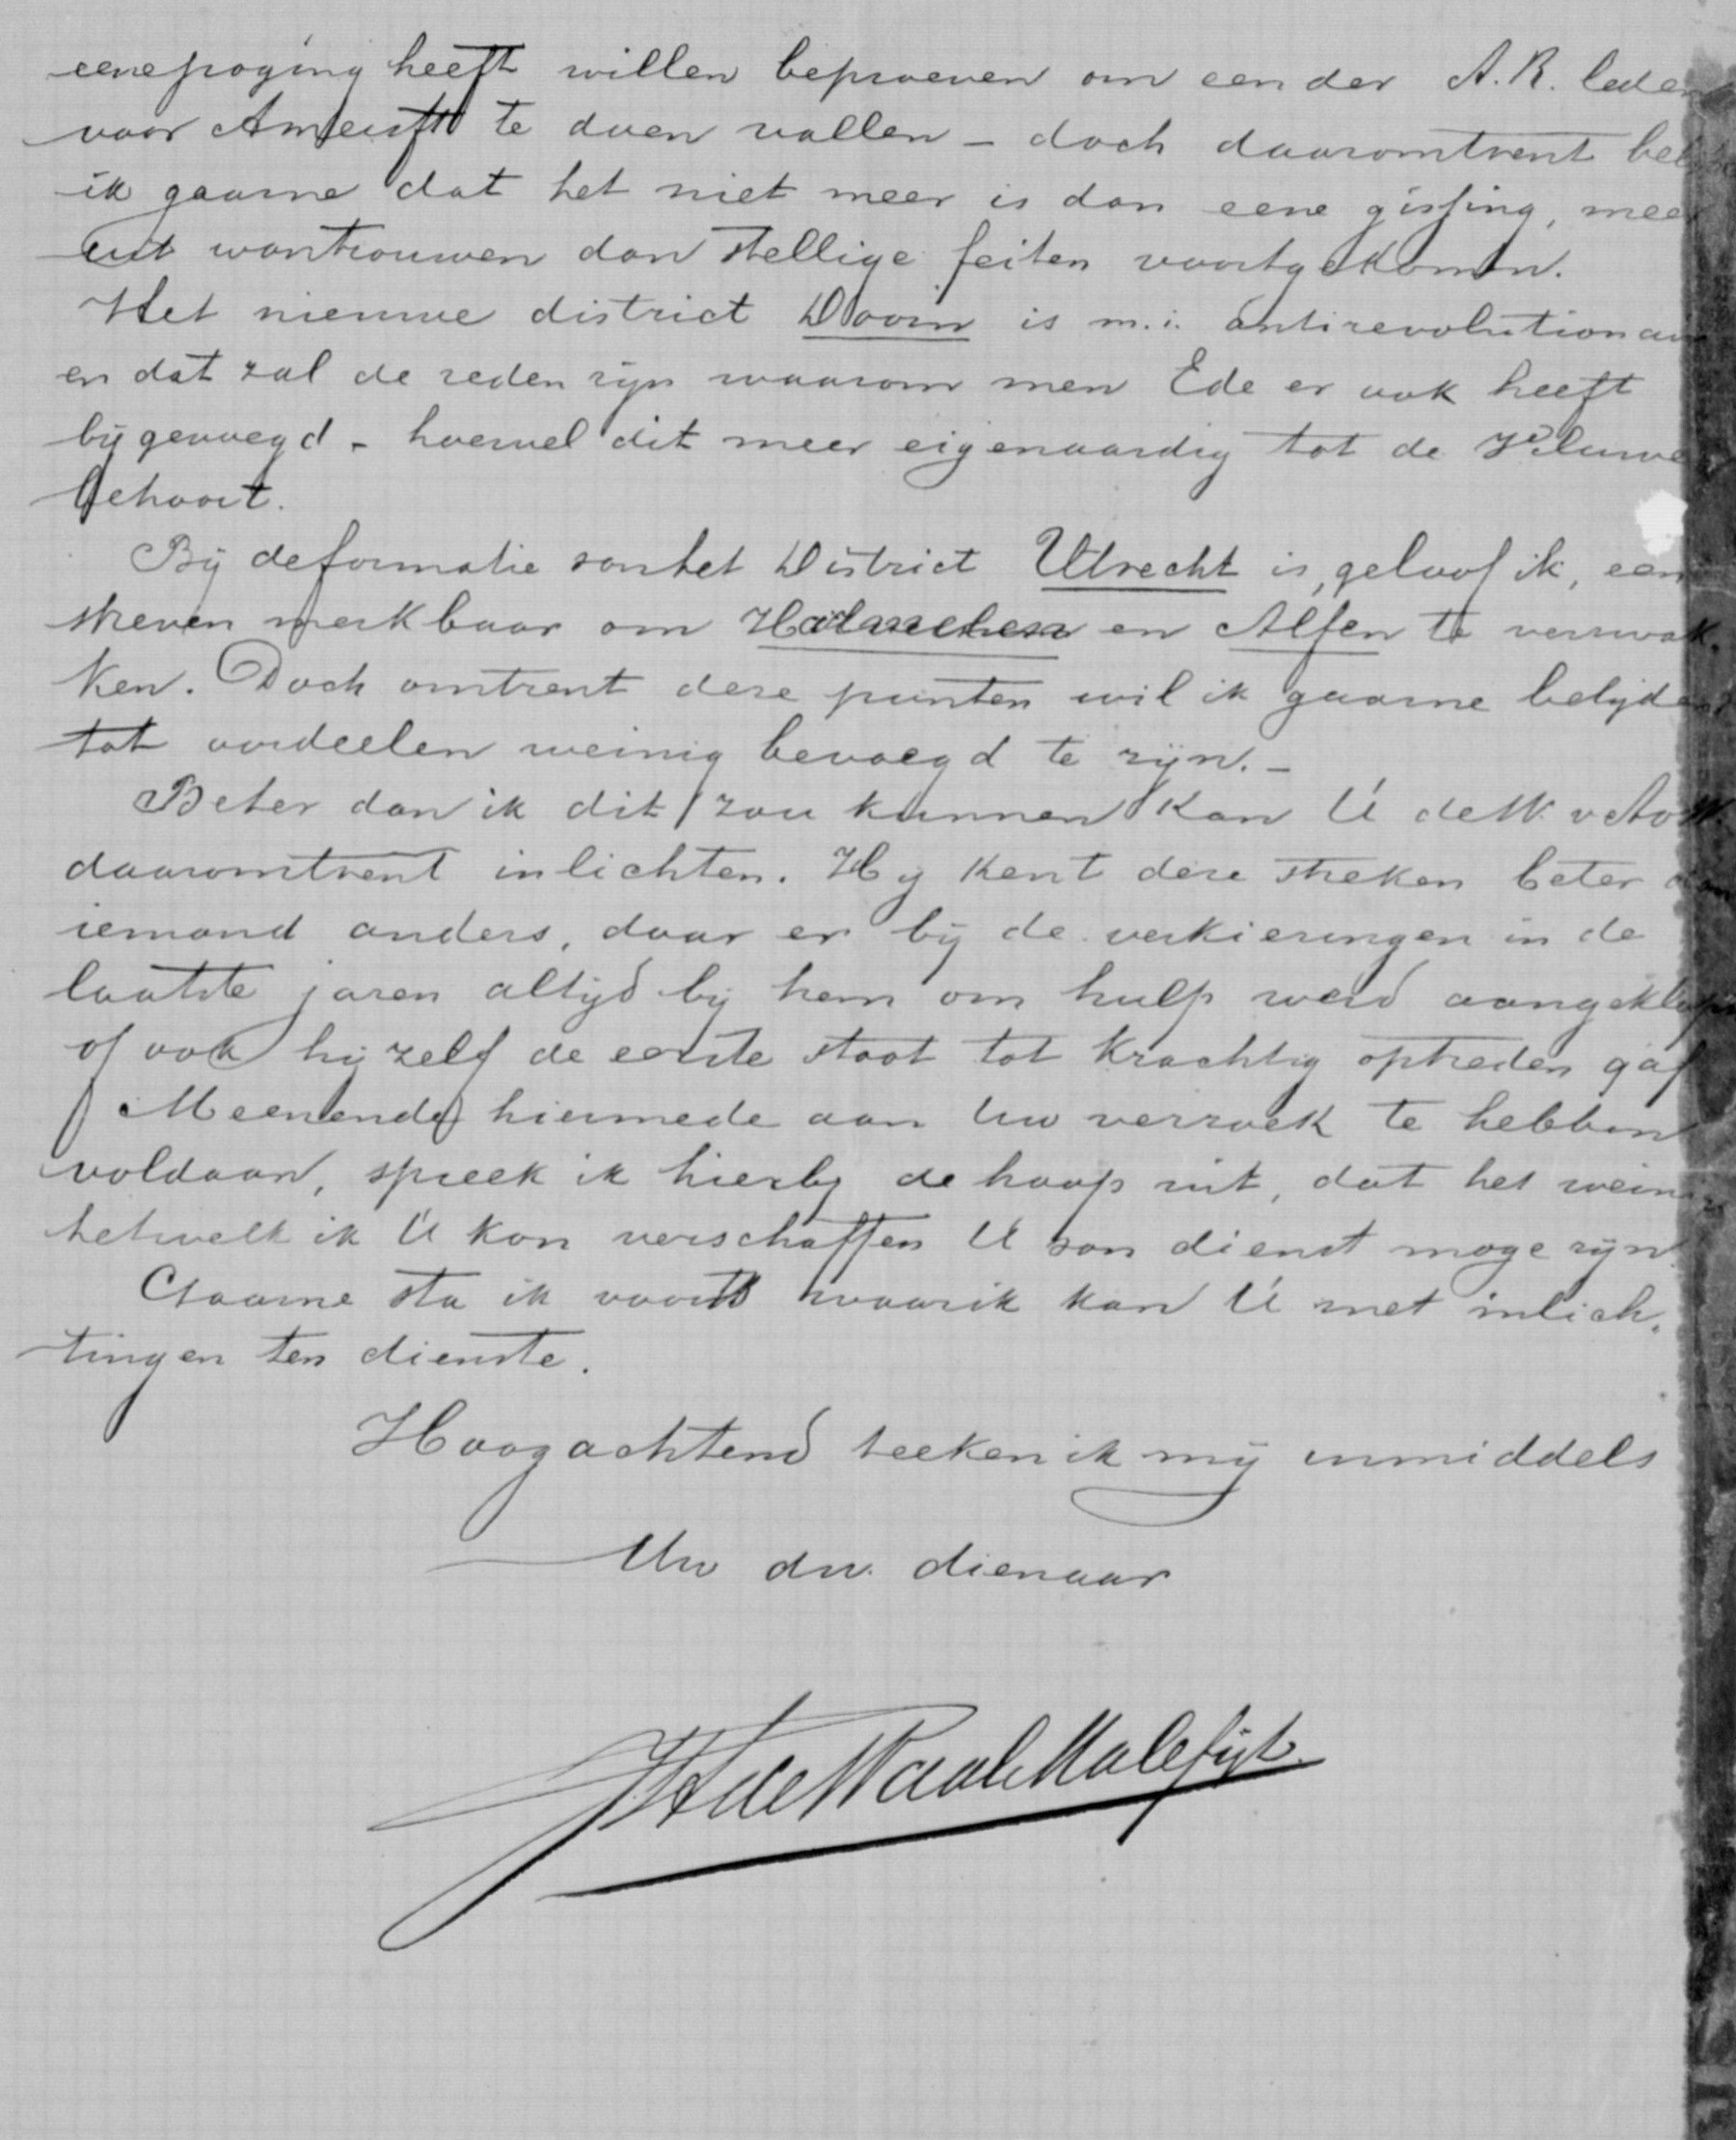 eene poging heeft willen beproeven om een der A.R. leden
voor Amersft te doen vallen – doch daaromtrent bel
ik gaarne dat het niet meer is dan eene gissing, meer
uit wantrouwen dan stellige feiten voortgekomen.
Het nieuwe district Doorn is m.i. antirevolutionair
en dat zal de reden zijn waarom men Ede er ook heeft
bijgevoegd – hoewel dit meer eigenaardig tot de Veluwe
behoort.
Bij de formatie van het District Utrecht is, geloof ik, een
streven merkbaar om en Alfen te verzwak
ken. Doch omtrent deze punten wil ik gaarne belijden
tot oordeelen weinig bevoegd te zijn. –
Beter dan ik dit zou kunnen kan U de W. v
daaromtrent inlichten. Hij kent deze streken beter dan
iemand anders, daar er bij de verkiezingen in de
laatste jaren altijd bij hem om hulp werd aangeklopt
of ook hij zelf de eerste stoot tot krachtig optreden gaf
Meenende hiermede aan Uw verzoek te hebben
voldaan, spreek ik hierbij de hoop uit, dat het weinige
hetwelk ik U kon verschaffen U van dienst moge zijn.
Gaarne sta ik voorts waar ik kan U met inlich-
tingen ten dienste.
Hoogachtend teeken ik mij inmiddels
Uw dw. dienaar
JH de Waal Malefijt